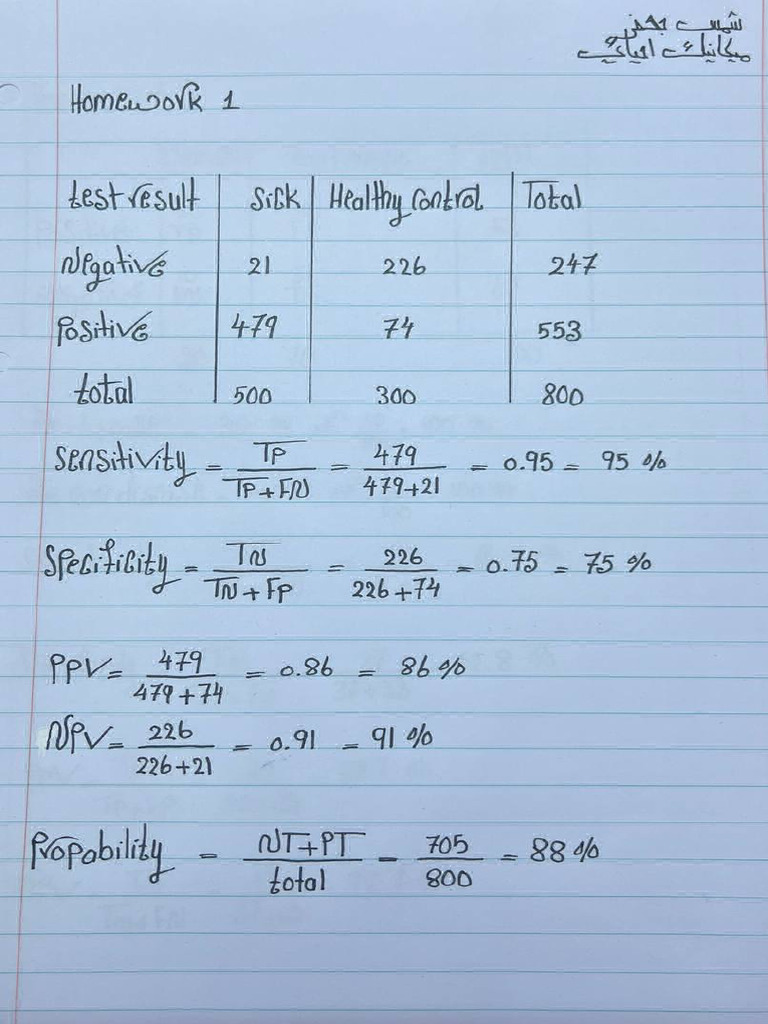 شمس
ميكانيك احيائي
Homework 1
test result | Sick | Healthy control | Total
Negative | 21 | 226 | 247
Positive | 479 | 74 | 553
total | 500 | 300 | 800
Sensitivity = TP / TP+FN = 479 / 479+21 = 0.95 = 95 %
Specificity = TN / TN+FP = 226 / 226+74 = 0.75 = 75 %
PPV = 479 / 479+74 = 0.86 = 86 %
NPV = 226 / 226+21 = 0.91 = 91 %
Propability = NT+PT / total = 705 / 800 = 88 %